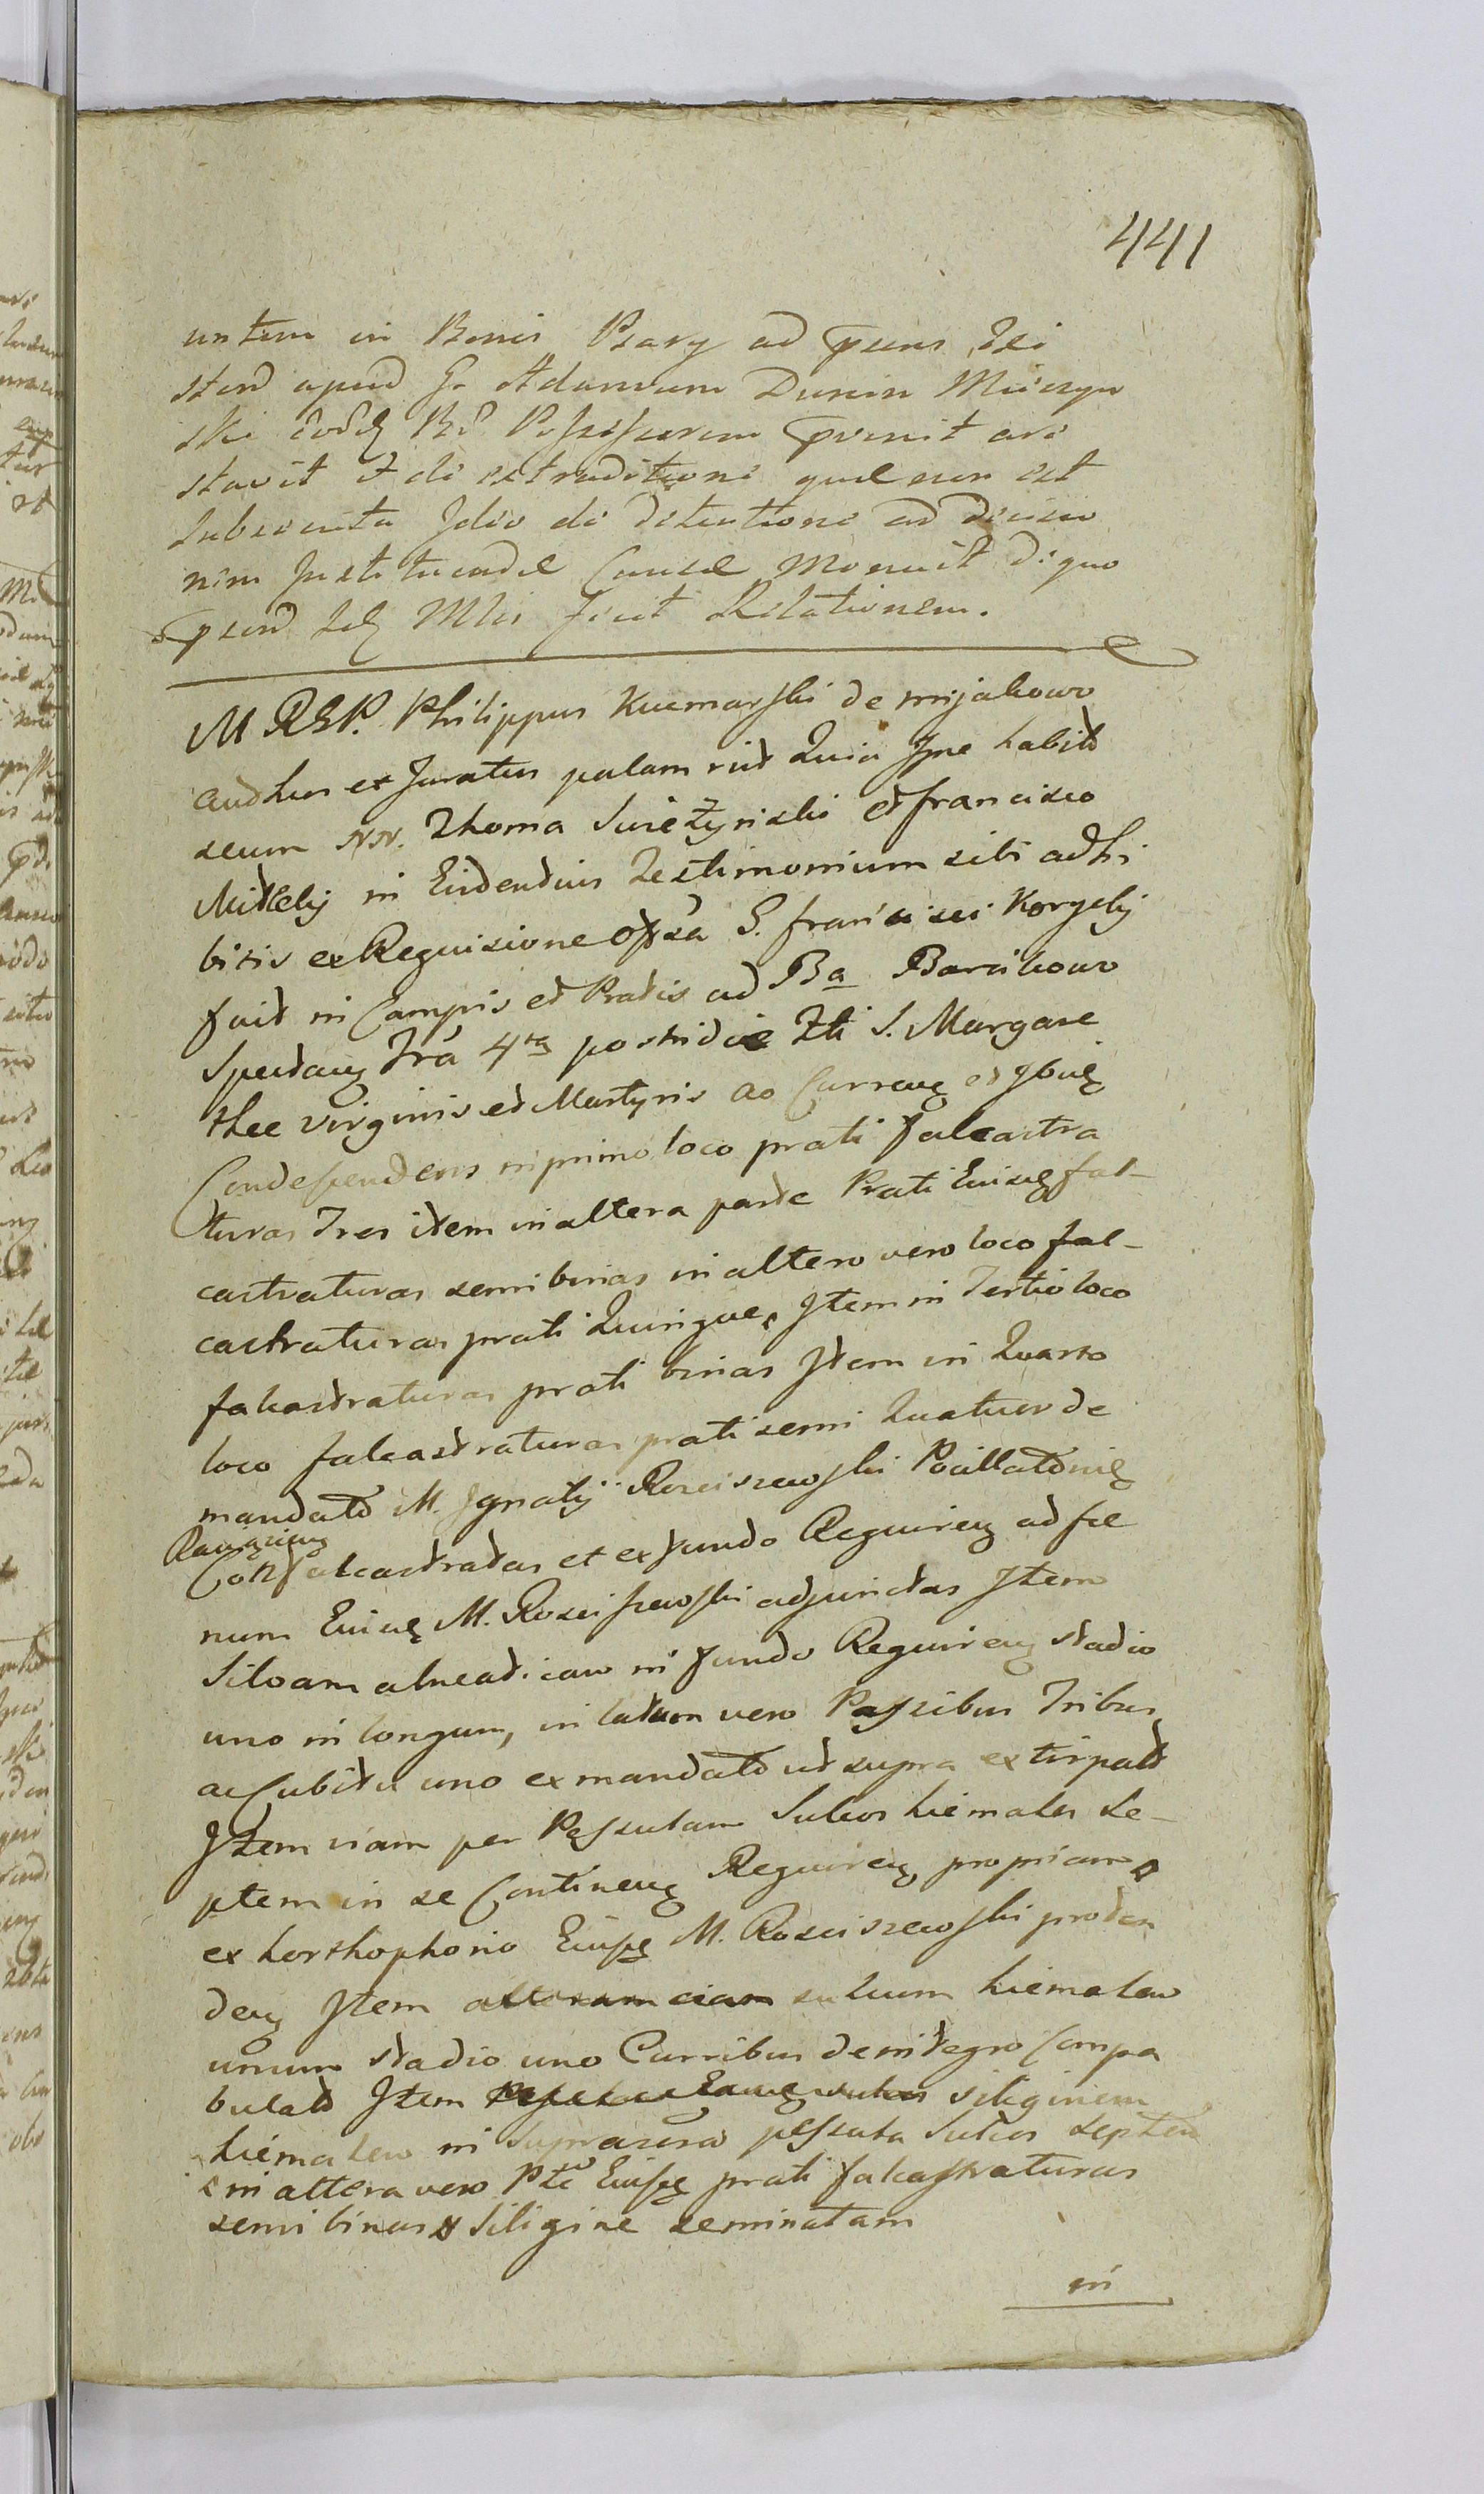 441
untem in Bonis Psary ad pńns exi
sten̄ apud G. Adamum Dunin Mieczyn
ski eorde͂ B̄ Possessorem pvenit are
stavit et de extraditione quae non est
subsecuta Ideo de detentione ad decisio
nem Instituendae Causae Monuit de quo
Mlis fecit Relationem.
M RSP. Philippus Kucmarski de mijakowo
et Juratus palam Quia Ipse habitis
secum NN. Thoma Swieżynski et francisco
in Testimonium sibi adhi
bitis ex Requisione S. francisci
fuit in Campis et Pratis ad Ba Barcikowo
Spectan̄ 4ta postridie S. Margare
thee virginis et Martyris ao Curren̄ et Ibidē
Condescendens in primo loco prati falcastra
turas Tres item in altera parte Prati Eiusdē fal-
castraturas semi binas in altero vero loco fal-
castraturas prati Quinque, Item in Tertio loco
falcastraturas prati binas Item in Quarto
loco falcastraturas prati semi Quatuor de
mandato M. Ignatij Rosciszewski
Confalcastratas et ex fundo Requiren̄ ad fae
num M. Rosciszewski adjunctas Item
Silvam alneaticam in fundo Requiren̄ stadio
uno in longum, in latum vero Passibus Tribus
ac Cubitu uno ex mandato ut supra extirpat
Item viam per Pessulam Sulcos hiemales Se-
ptem in se Continen̄ Requiren̄ propriam
ex horthophorio M. Rosciszewski proten
den̄ Item alteram viam sulcum hiemalem
unum stadio uno Curribus de integro Compa
bulat Item siliginem
hiemalem in pessula Sulcos septem
in altera vero Pte prati falcastraturas
semi binas Siligine seminatam
in